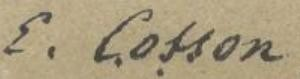 E. Cosson